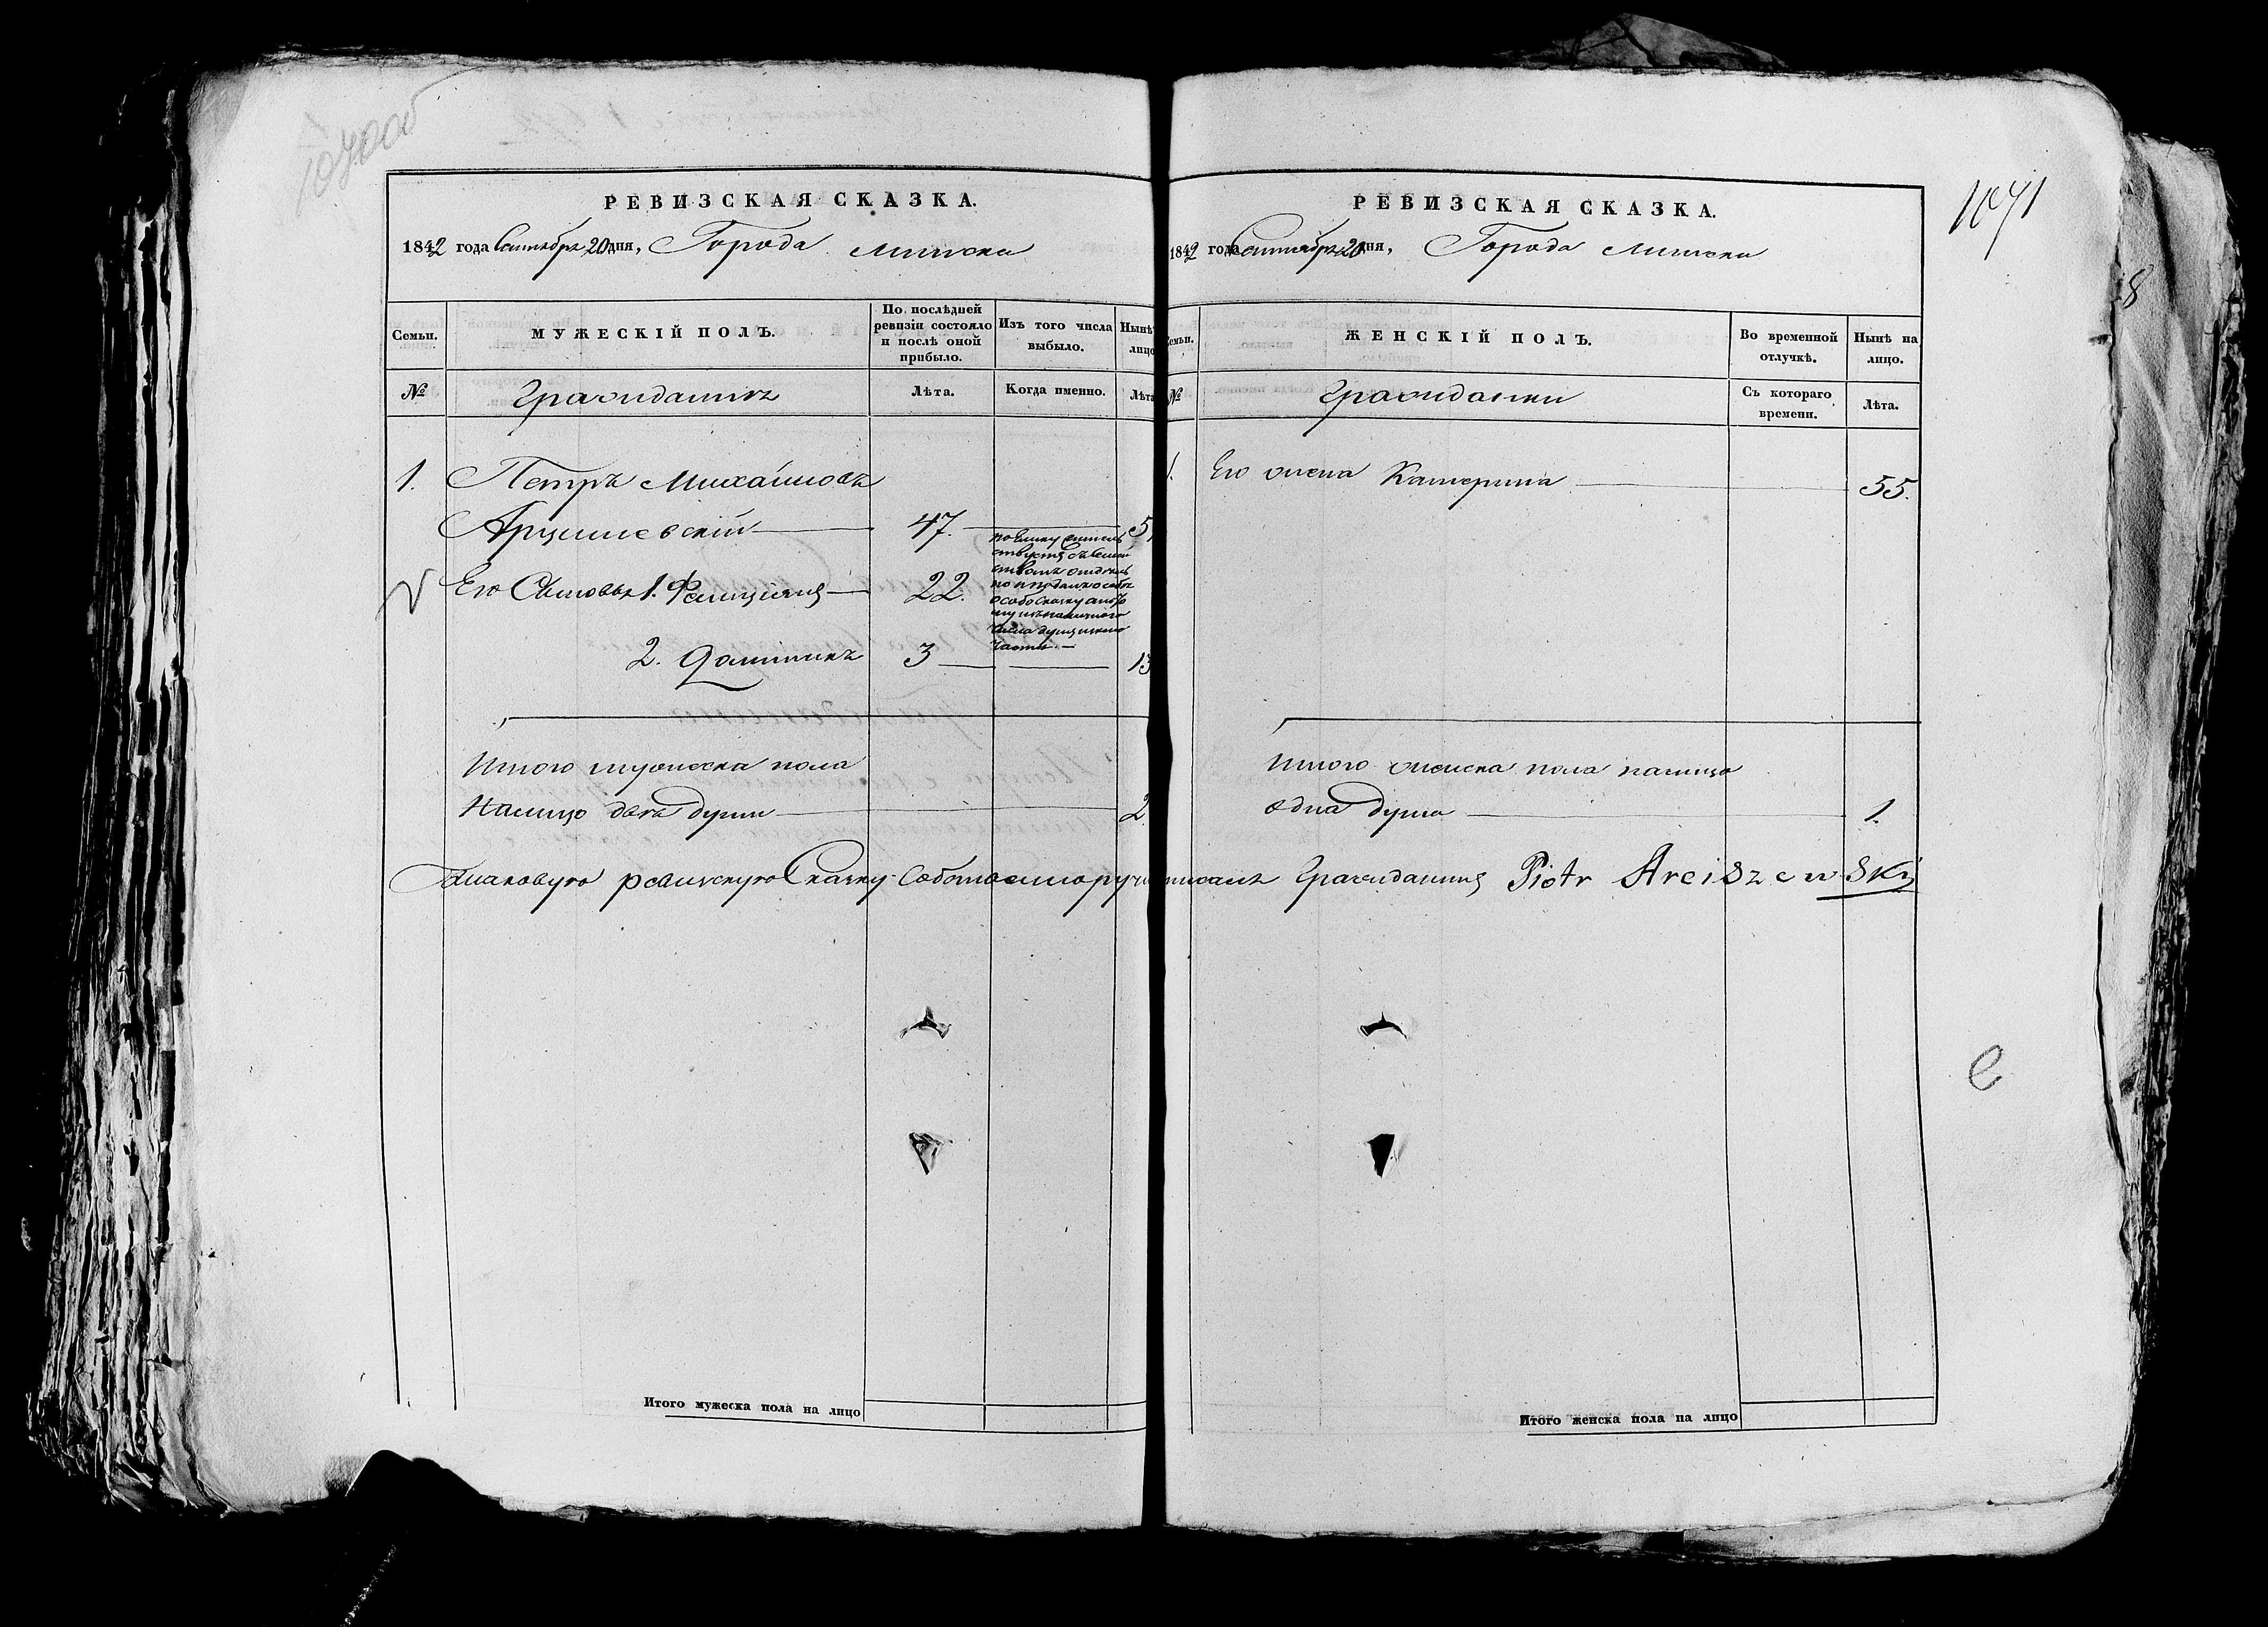 1070об
РЕВИЗСКАЯ СКАЗКА.
1842 года Сентября 20 дня, Города Минска
Семьи.
МУЖЕСКІЙ ПОЛЪ.
По послѣдней ревизіи состояло и послѣ оной прибыло.
Изъ того числа выбыло.
Нынѣ
лицо
№
Гражданинъ
Лѣта.
Когда именно.
Лѣта
1. Петръ Михайловъ
Арцишевскій 47. 5
Его Сыновья 1. Фелиціянъ 22.
отдѣль
особо сказку
числа
части.
2. Доминикъ 3 13
Итого мужеска пола
Налицо двѣ души 2.
РЕВИЗСКАЯ СКАЗКА.
1842 года Сентября 20 дня, Города Минска
1071
8
Семьи.
ЖЕНСКІЙ ПОЛЪ.
Во временной отлучкѣ.
Нынѣ на лицо.
№
Гражданки
Съ котораго времени.
Лѣта.
1. Его жена Катерина 55.
Итого женска пола налицо
одна душа 1.
Таковую ревизскую Сказку Собственноручно
писалъ Гражданинъ Piotr Arciszewski
Итого мужеска пола на лицо
Итого женска пола на лицо